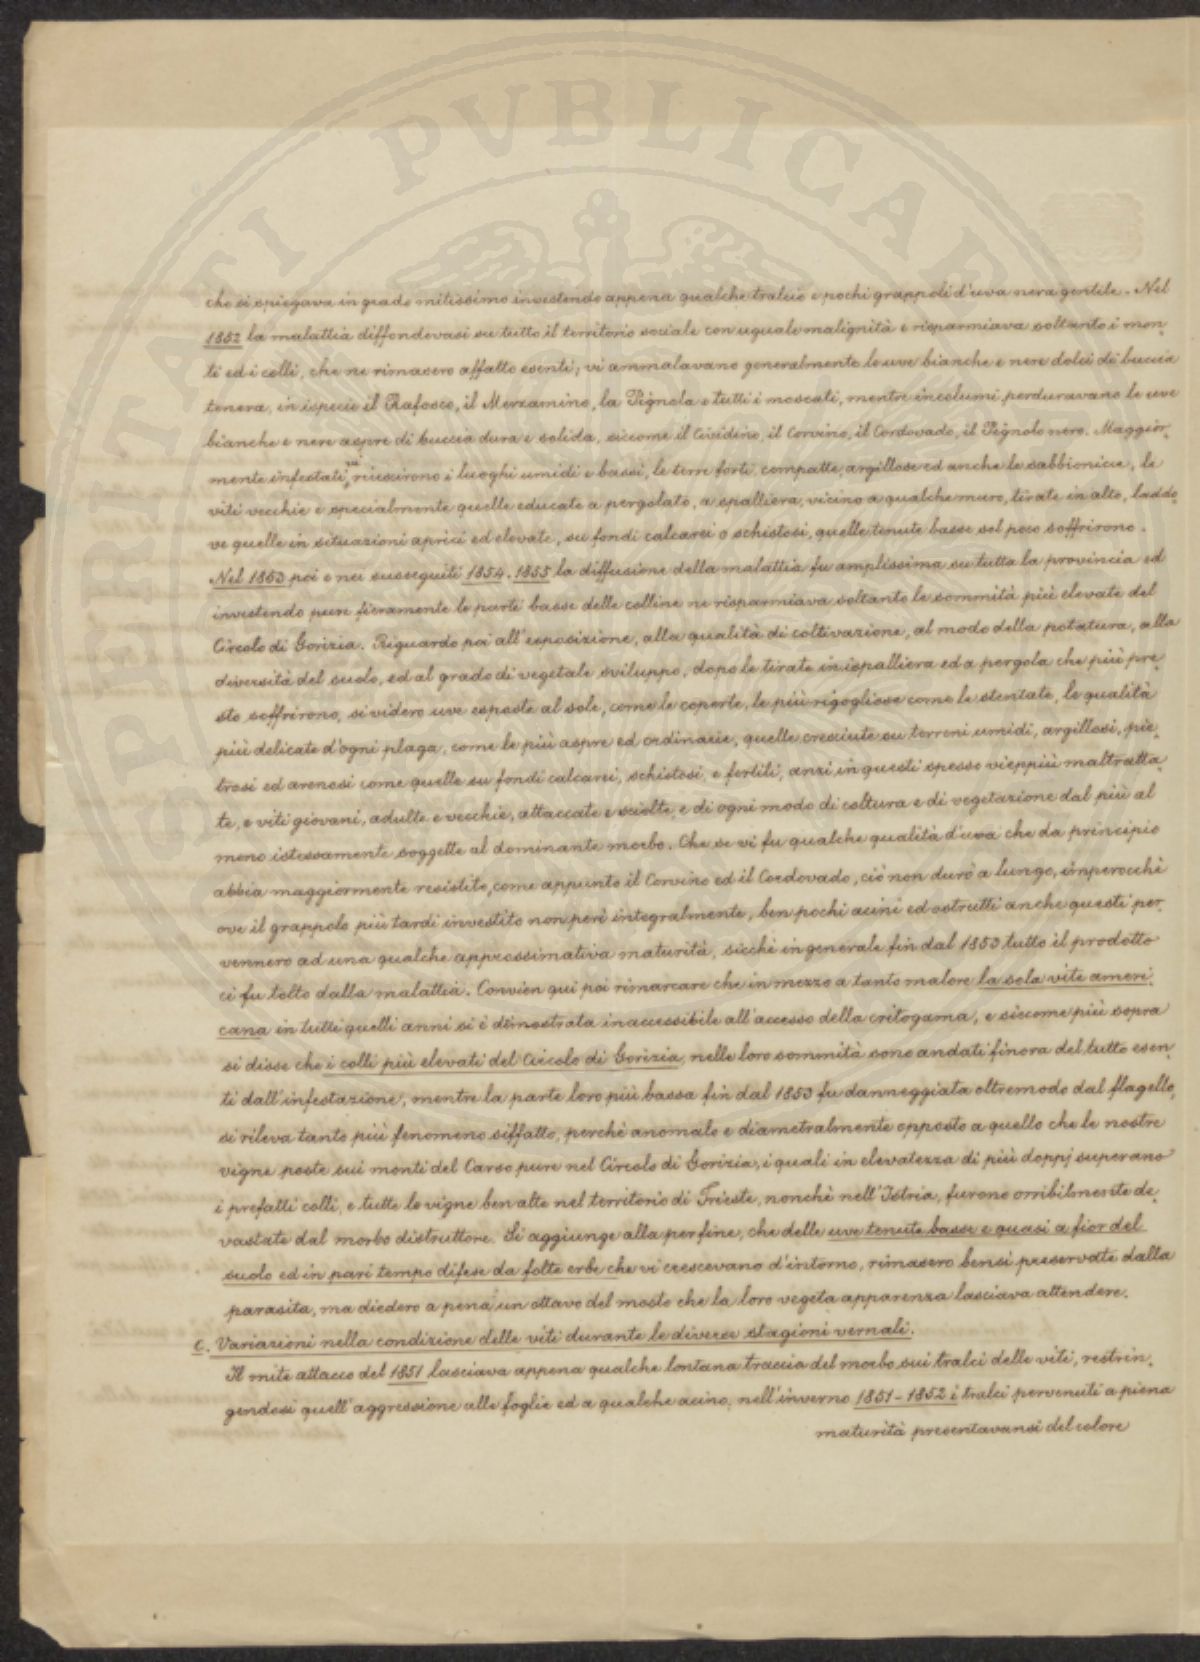 PERITATI PVBLICAE
che si spiegava in grado mitissimo investendo appena qualche tralcio e pochi grappoli d'uva nera gentile. Nel
1852 la malattia diffondevasi su tutto il territorio sociale con uguale malignità e risparmiava soltanto i mon,
ti ed i colli, che ne rimasero affatto esenti; vi ammalavano generalmente le uve bianche e nere dolci di buccia
tenera, in ispecie il Rafosco, il Merzamino, la Pignola e tutti i moscati, mentre incolumi perduravano le uve
bianche e nere aspre di buccia dura e solida, siccome il Cividino, il Corvino, il Cordovado, il Pignolo nero. Maggior,
mente infestati riuscirono i luoghi umidi e bassi, le terre forti, compatte, argillose ed anche le sabbionicie, le
viti vecchie e specialmente quelle educate a pergolato, a spalliera, vicino a qualche muro, tirate in alto, laddo,
ve quelle in situazioni aprici ed elevate, su fondi calcarei o schistosi, quelle tenute basse sol poco soffrirono.
Nel 1853 poi e nei susseguiti 1854. 1855 la diffusione della malattia fu amplissima su tutta la provincia ed
investendo pure fieramente le parti basse delle colline ne risparmiava soltanto le sommità più elevate del
Circolo di Gorizia. Riguardo poi all'esposizione, alla qualità di coltivazione, al modo della potatura, alla
diversità del suolo, ed al grado di vegetale sviluppo, dopo le tirate in ispalliera ed a pergola che più pre,
sto soffrirono, si videro uve esposte al sole, come le coperte, le più rigogliose come le stentate, le qualità
più delicate d'ogni plaga, come le più aspre ed ordinarie, quelle cresciute su terreni umidi, argillosi, pie,
trosi ed arenosi come quelle su fondi calcarei, schistosi, e fertili, anzi in questi spesso vieppiù maltratta,
te, e viti giovani, adulte e vecchie, attaccate e sciolte, e di ogni modo di coltura e di vegetazione dal più al
meno istessamente soggette al dominante morbo. Che se vi fu qualche qualità d'uva che da principio
abbia maggiormente resistito, come appunto il Corvino ed il Cordovado, ciò non durò a lungo, imperocchè
ove il grappolo più tardi investito non perì integralmente, ben pochi acini ed ostrutti anche questi per,
vennero ad una qualche approssimativa maturità, sicchè in generale fin dal 1853 tutto il prodotto
ci fu tolto dalla malattia. Convien qui poi rimarcare che in mezzo a tanto malore la sola vite ameri,
cana in tutti quelli anni si è dimostrata inaccessibile all'accesso della critogama, e siccome più sopra
si disse che i colli più elevati del Circolo di Gorizia, nelle loro sommità sono andati finora del tutto esen,
ti dall'infestazione, mentre la parte loro più bassa fin dal 1853 fu danneggiata oltremodo dal flagello,
si rileva tanto più fenomeno siffatto, perchè anomalo e diametralmente opposto a quello che le nostre
vigne poste sui monti del Carso pure nel Circolo di Gorizia, i quali in elevatezza di più doppj superano
i prefatti colli, e tutte le vigne ben alte nel territorio di Trieste, nonchè nell'Istria, furono orribilmente de,
vastate dal morbo distruttore. Si aggiunge alla perfine, che delle uve tenute basse e quasi a fior del
suolo ed in pari tempo difese da folte erbe che vi crescevano d'intorno, rimasero bensì preservate dalla
parasita, ma diedero a pena un ottavo del mosto che la loro vegeta apparenza lasciava attendere.
c. Variazioni nella condizione delle viti durante le diverse stagioni vernali.
Il mite attacco del 1851 lasciava appena qualche lontana traccia del morbo sui tralci delle viti, restrin,
gendosi quell'aggressione alle foglie ed a qualche acino; nell'inverno 1851-1852 i tralci pervenuti a piena
maturità presentavansi del colore